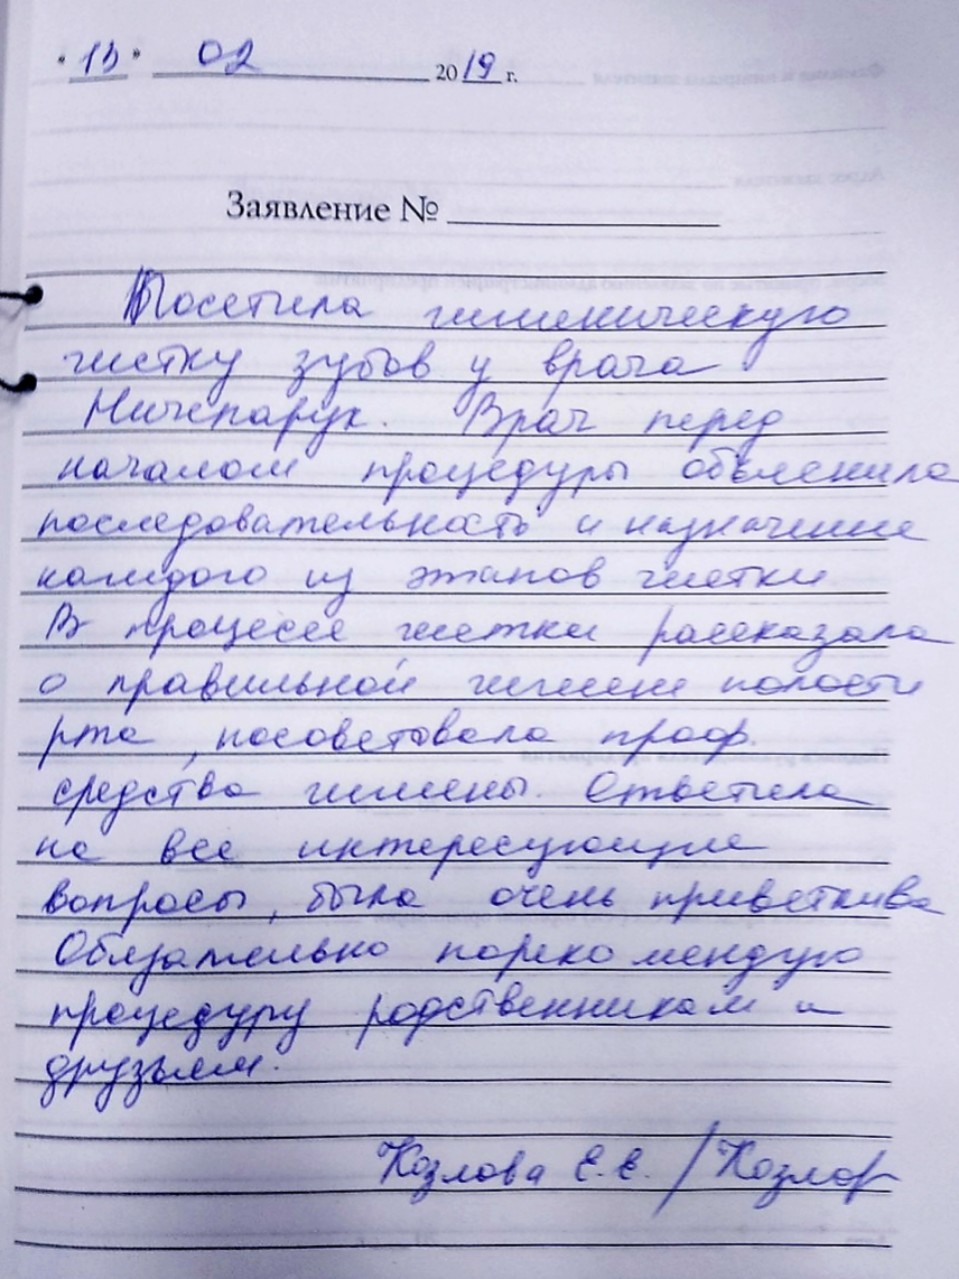 "13" 02 2019 г.
Заявление №
Посетила гигиеническую
чистку зубов у врача
Ничепарук. Врач перед
началом процедуры объяснила
последовательность и назначение
каждого из этапов чистки.
В процессе чистки рассказала
о правильной гигиене полости
рта, посоветовала проф.
средства гигиены. Ответила
на все интересующие
вопросы, была очень приветлива
Обязательно порекомендую
процедуру родственникам и
друзьям.
Козлова Е.Е. / Козлов